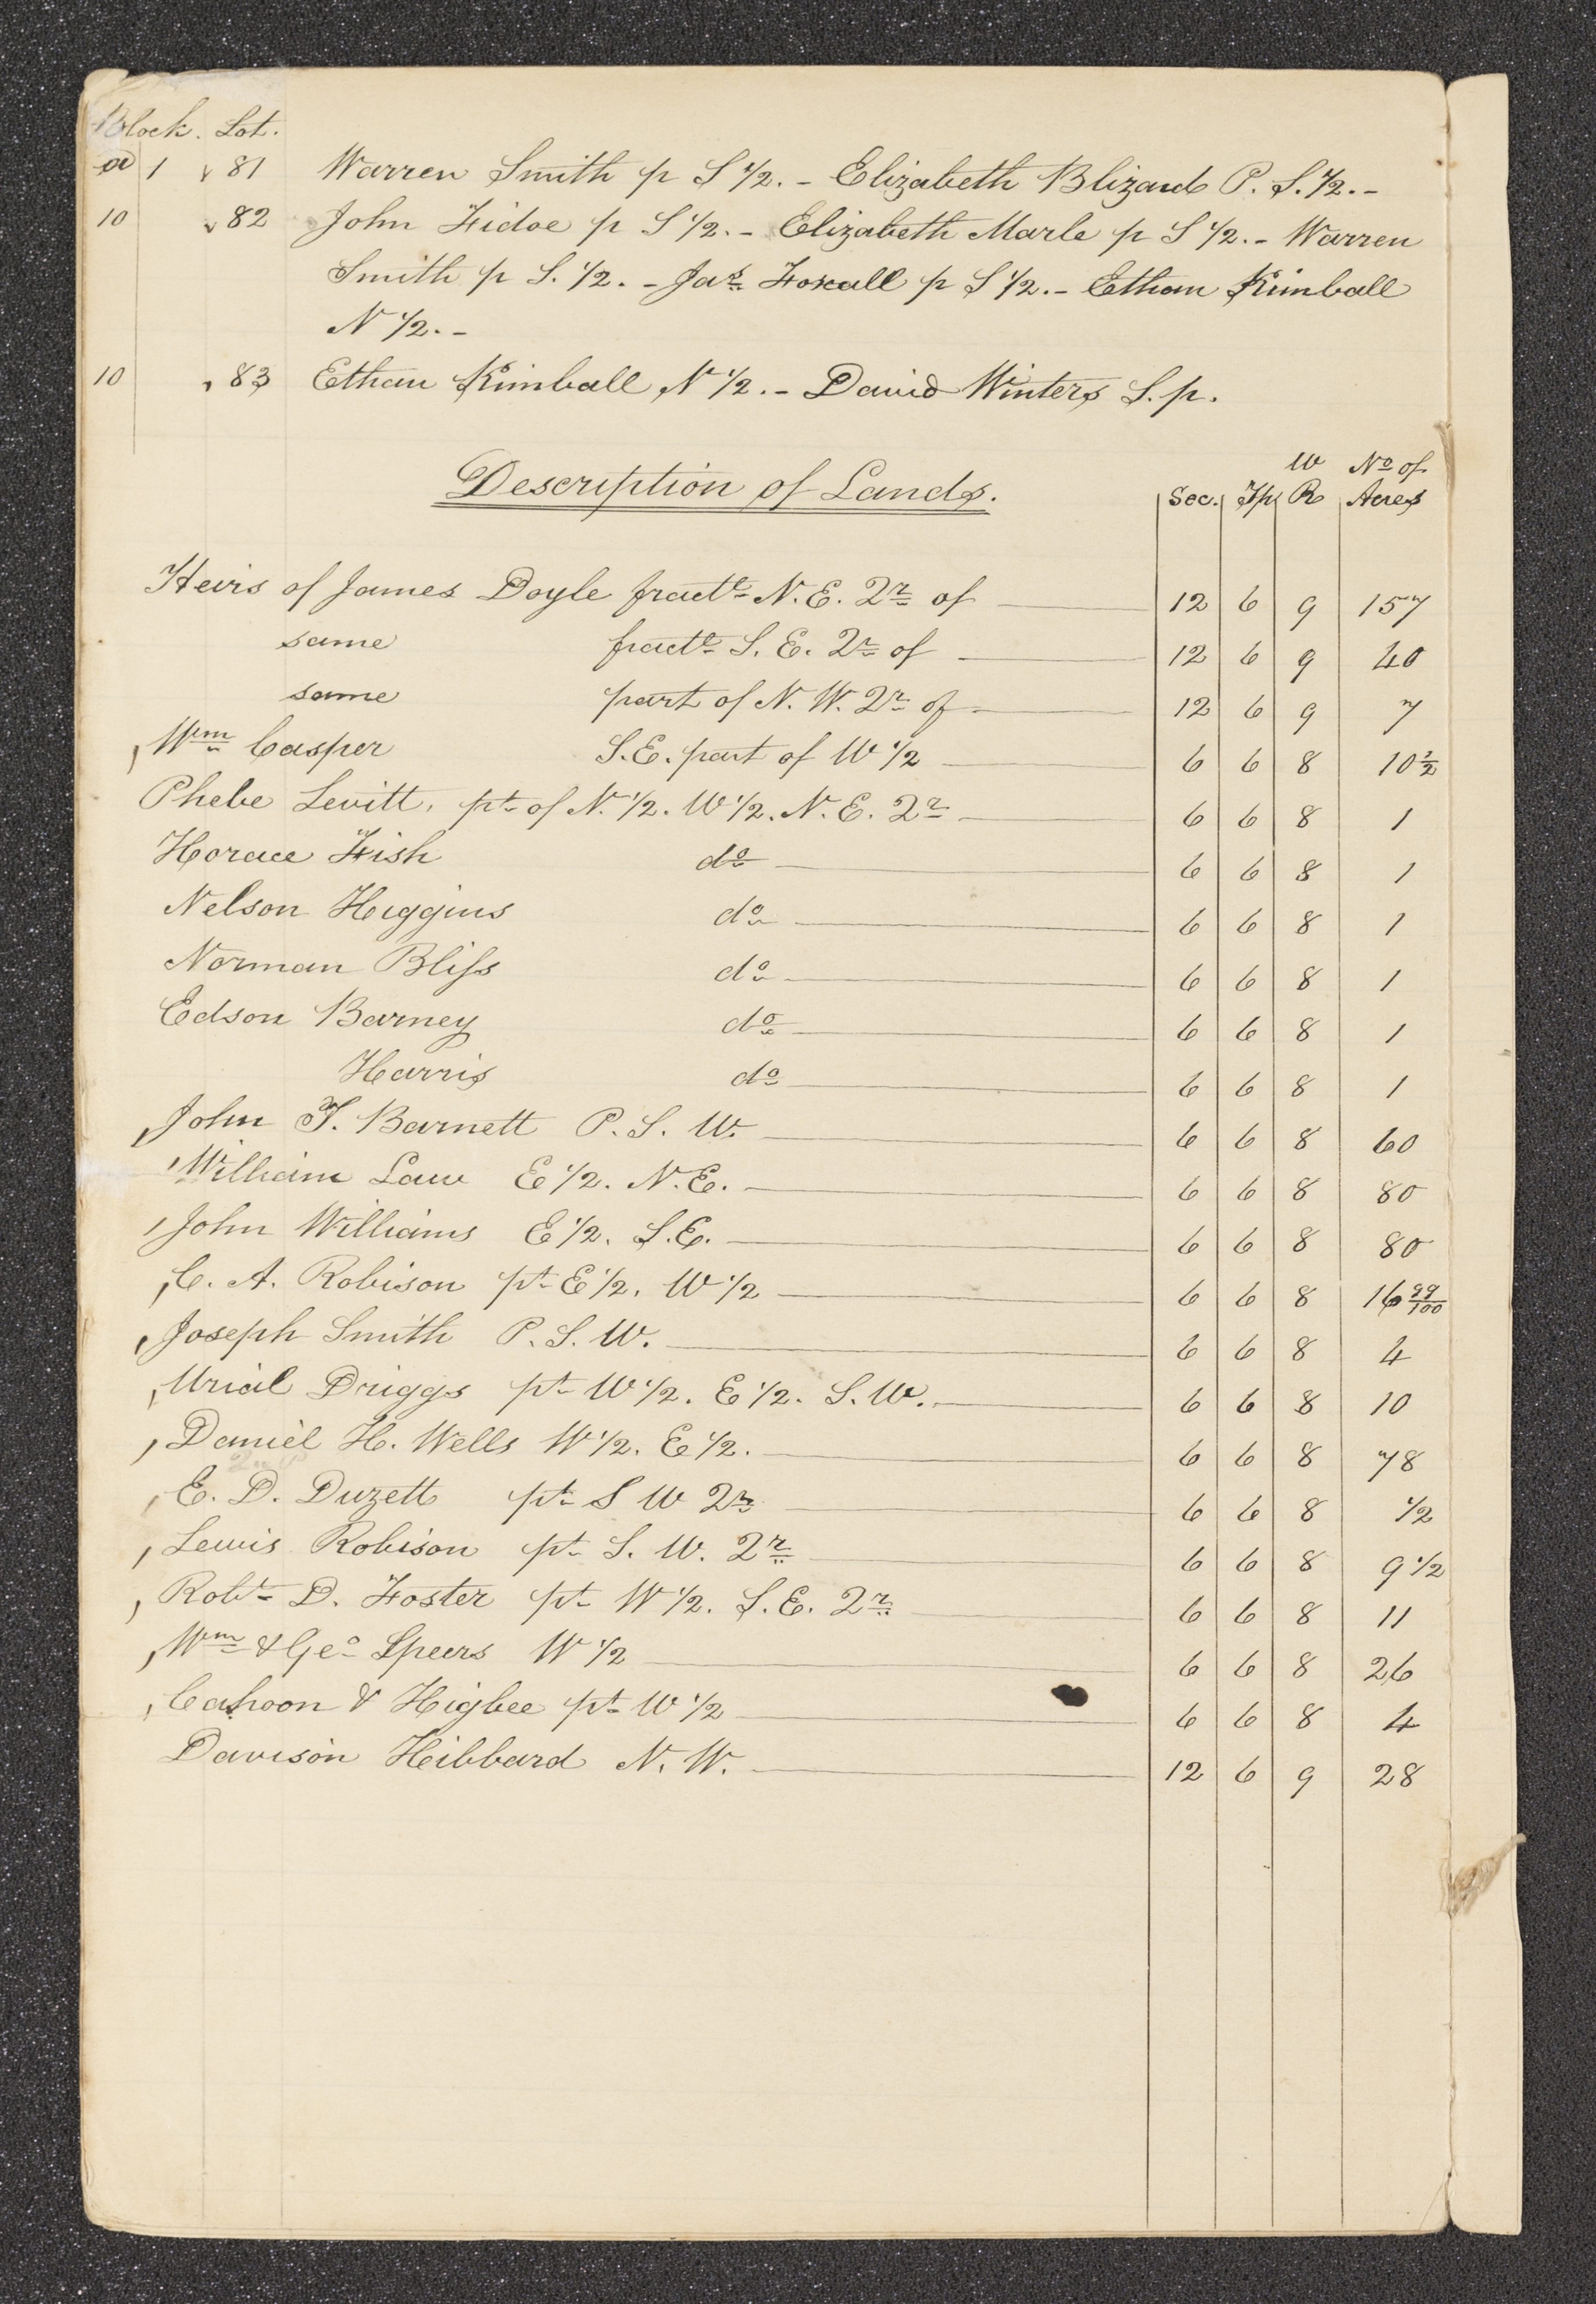 Block. Lot.
a 1 81 Warren Smith p S 1/2. - Elizabeth Blizard P. S. 1/2. -
10 82 John Fidoe p S 1/2. - Elizabeth Marle p S 1/2. - Warren
Smith p S. 1/2. - Jas. Foxall p S 1/2. - Ethan Kimball
N 1/2. -
10 83 Ethan Kimball N 1/2. - David Winters S. p.
W No of
Description of Lands. Sec. Tp R Acres
Heirs of James Doyle fractl N. E. Qr of 12 6 9 157
same fractl S. E. Qr of 12 6 9 40
same part of N. W. Qr of 12 6 9 7
Wm Casper S. E. part of W 1/2 6 6 8 10 1/2
Phebe Levitt, pt of N. 1/2. W 1/2. N. E. Qr 6 6 8 1
Horace Fish do 6 6 8 1
Nelson Higgins do 6 6 8 1
Norman Bliss do 6 6 8 1
Edson Barney do 6 6 8 1
Harris do 6 6 8 1
John T. Barnett P. S. W. 6 6 8 60
William Law E 1/2. N. E. 6 6 8 80
John Williams E 1/2. S. E. 6 6 8 80
C. A. Robison pt E 1/2. W 1/2 6 6 8 16 99/100
Joseph Smith P. S. W. 6 6 8 4
Urial Driggs pt W 1/2. E 1/2. S. W. 6 6 8 10
Daniel H. Wells W 1/2. E 1/2. 6 6 8 78
E. D. Duzett pt S W Qr 6 6 8 1/2
Lewis Robison pt S. W. Qr 6 6 8 9 1/2
Robt D. Foster pt W 1/2. S. E. Qr 6 6 8 11
Wm & Geo Speers W 1/2 6 6 8 26
Cahoon & Higbee pt W 1/2 6 6 8 4
Davison Hibbard N. W. 12 6 9 28